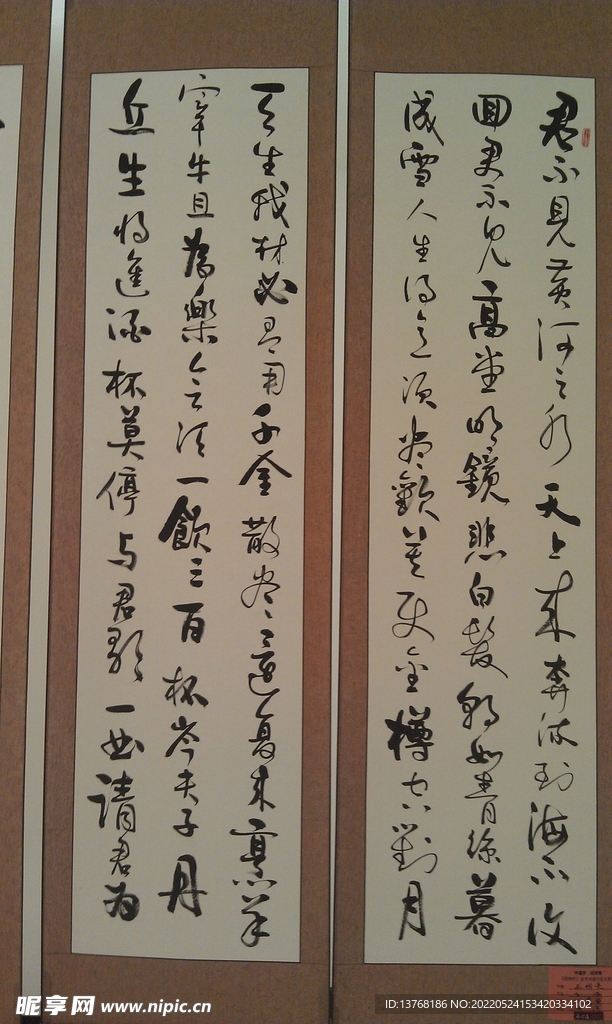 君不見黃河之水天上來奔流到海不復
回君不見高堂明鏡悲白髮朝如青絲暮
成雪人生得意須盡歡莫使金樽空對月
天生我材必有用千金散盡還復來烹羊
宰牛且為樂會須一飲三百杯岑夫子丹
丘生將進酒杯莫停与君歌一曲請君為
昵享网 www.nipic.cn
ID:13768186 NO:20220524153420334102